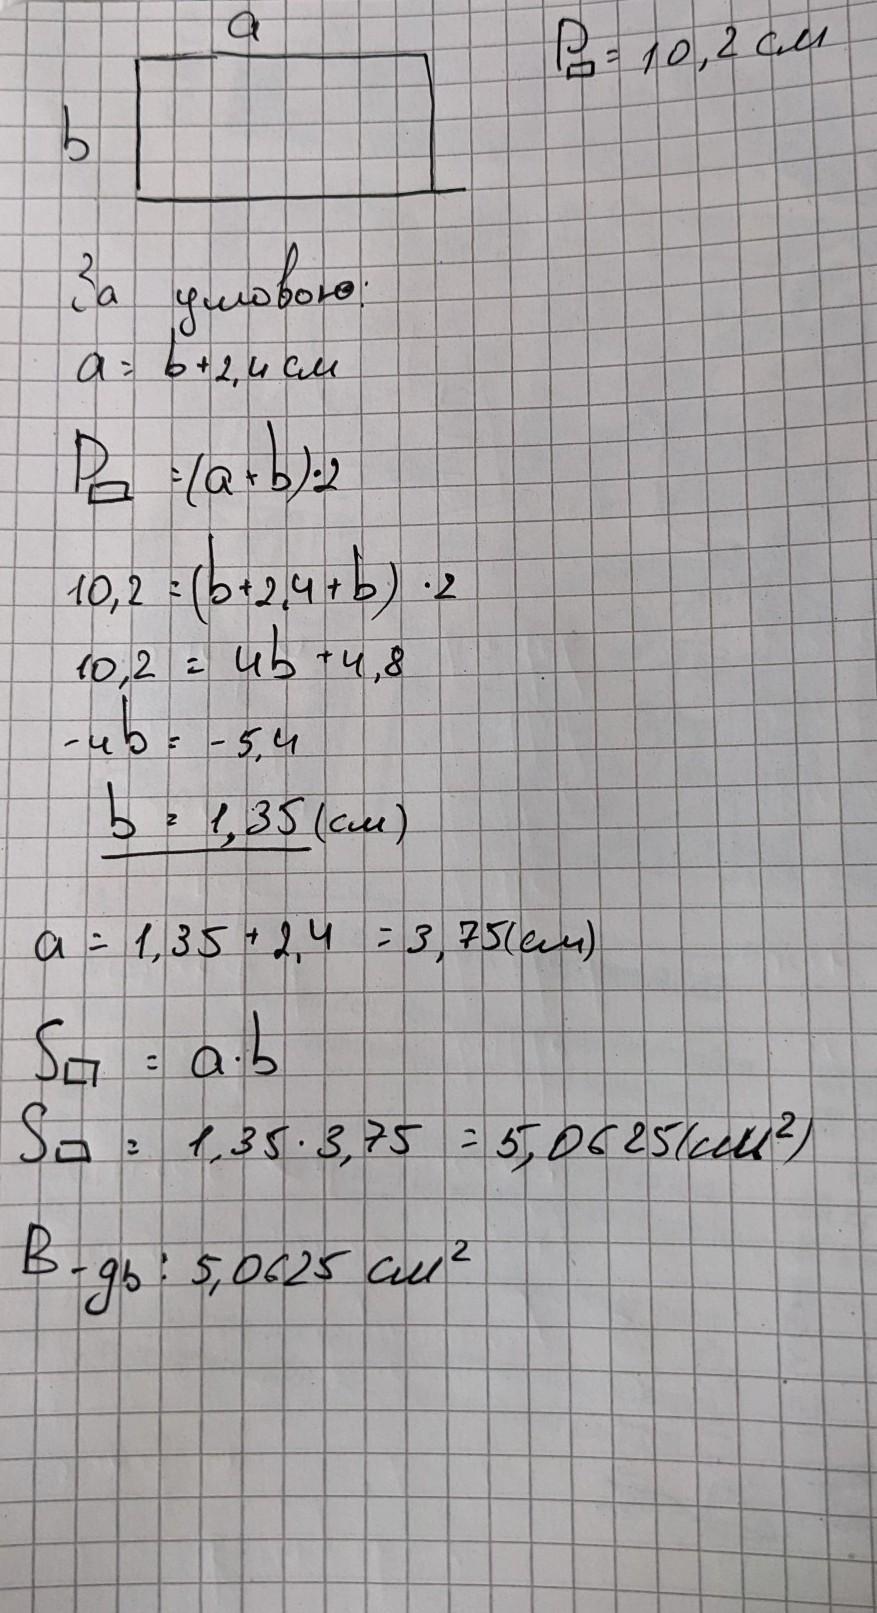 a
P▭ = 10,2 см
b
За умовою:
a = b + 2,4 см
P▭ = (a + b)·2
10,2 = (b + 2,4 + b) · 2
10,2 = 4b + 4,8
-4b = -5,4
b = 1,35 (см)
a = 1,35 + 2,4 = 3,75 (см)
S▭ = a·b
S▭ = 1,35 · 3,75 = 5,0625 (см²)
В-дь: 5,0625 см²